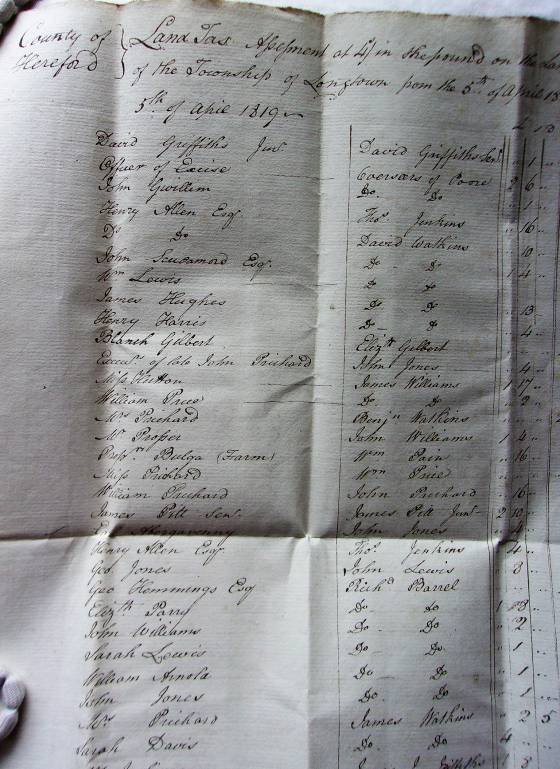 County of Hereford } Land Tax Assessment at 4/ in the pound on the Lan
of the Township of Longtown from the 5th of April 18
5th of April 1819
David Griffiths Junr David Griffiths Senr 1
Officer of Excise Overseers of Poore 2 6
John Gwillim Do Do 1
Henry Allen Esqr Thos Jenkins 16
Do Do David Watkins 10
John Scudamore Esqr Do Do 1 4
Wm Lewis Do Do
James Hughes Do Do 13
Henry Harris Do Do 4
Blanch Gilbert Elizth Gilbert
Execurs of late John Prichard John Jones 4
Miss Hutton James Williams 1 17
William Price Do Do 2
Mrs Prichard Benjn Watkins
Mr Prosser John Williams 1 4
Bulga (Farm) Wm Pain 16
Miss Prichard Wm Price
William Prichard John Prichard 16
James Pitt Senr James Pitt Junr 2 10
Abergavenny John Jones 4
Henry Allen Esqr Thos Jenkins 4
Geo Jones John Lewis 8
Geo Hemmings Esq Richd Barrel
Elizth Parry Do Do 1
John Williams Do Do 2
Sarah Lewis Do Do 1
William Arnold Do Do 1
John Jones Do Do 1
Mrs Prichard James Watkins 2 5
Sarah Davis Do Do 4